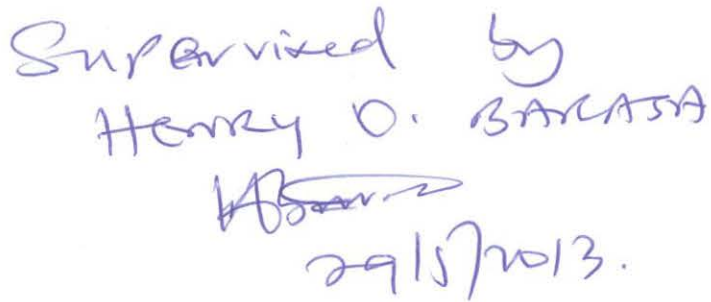 Supervised by
HENRY O. BARASA
29/5/2013.